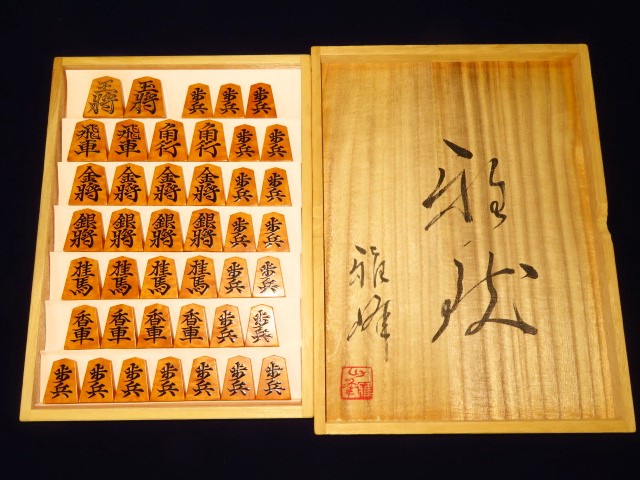 王将 玉将 歩兵 歩兵 歩兵
飛車 飛車 角行 角行 歩兵 歩兵
金将 金将 金将 金将 歩兵 歩兵
銀将 銀将 銀将 銀将 歩兵 歩兵
桂馬 桂馬 桂馬 桂馬 歩兵 歩兵
香車 香車 香車 香車 歩兵 歩兵
歩兵 歩兵 歩兵 歩兵 歩兵 歩兵 歩兵
雅峰